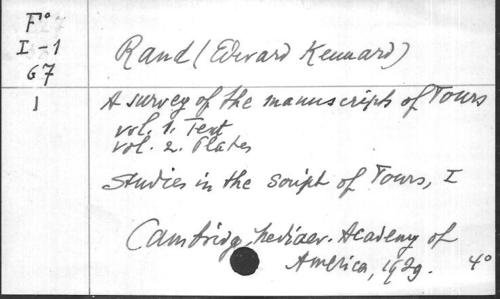 F°
I-1
G7
1
Rand (Edward Kennard)
A survey of the manuscripts of Tours
vol. 1. Text
vol. 2. Plates
Studies in the script of Tours, I
Cambridg, Mediaev. Academy of
America, 1929. 4°